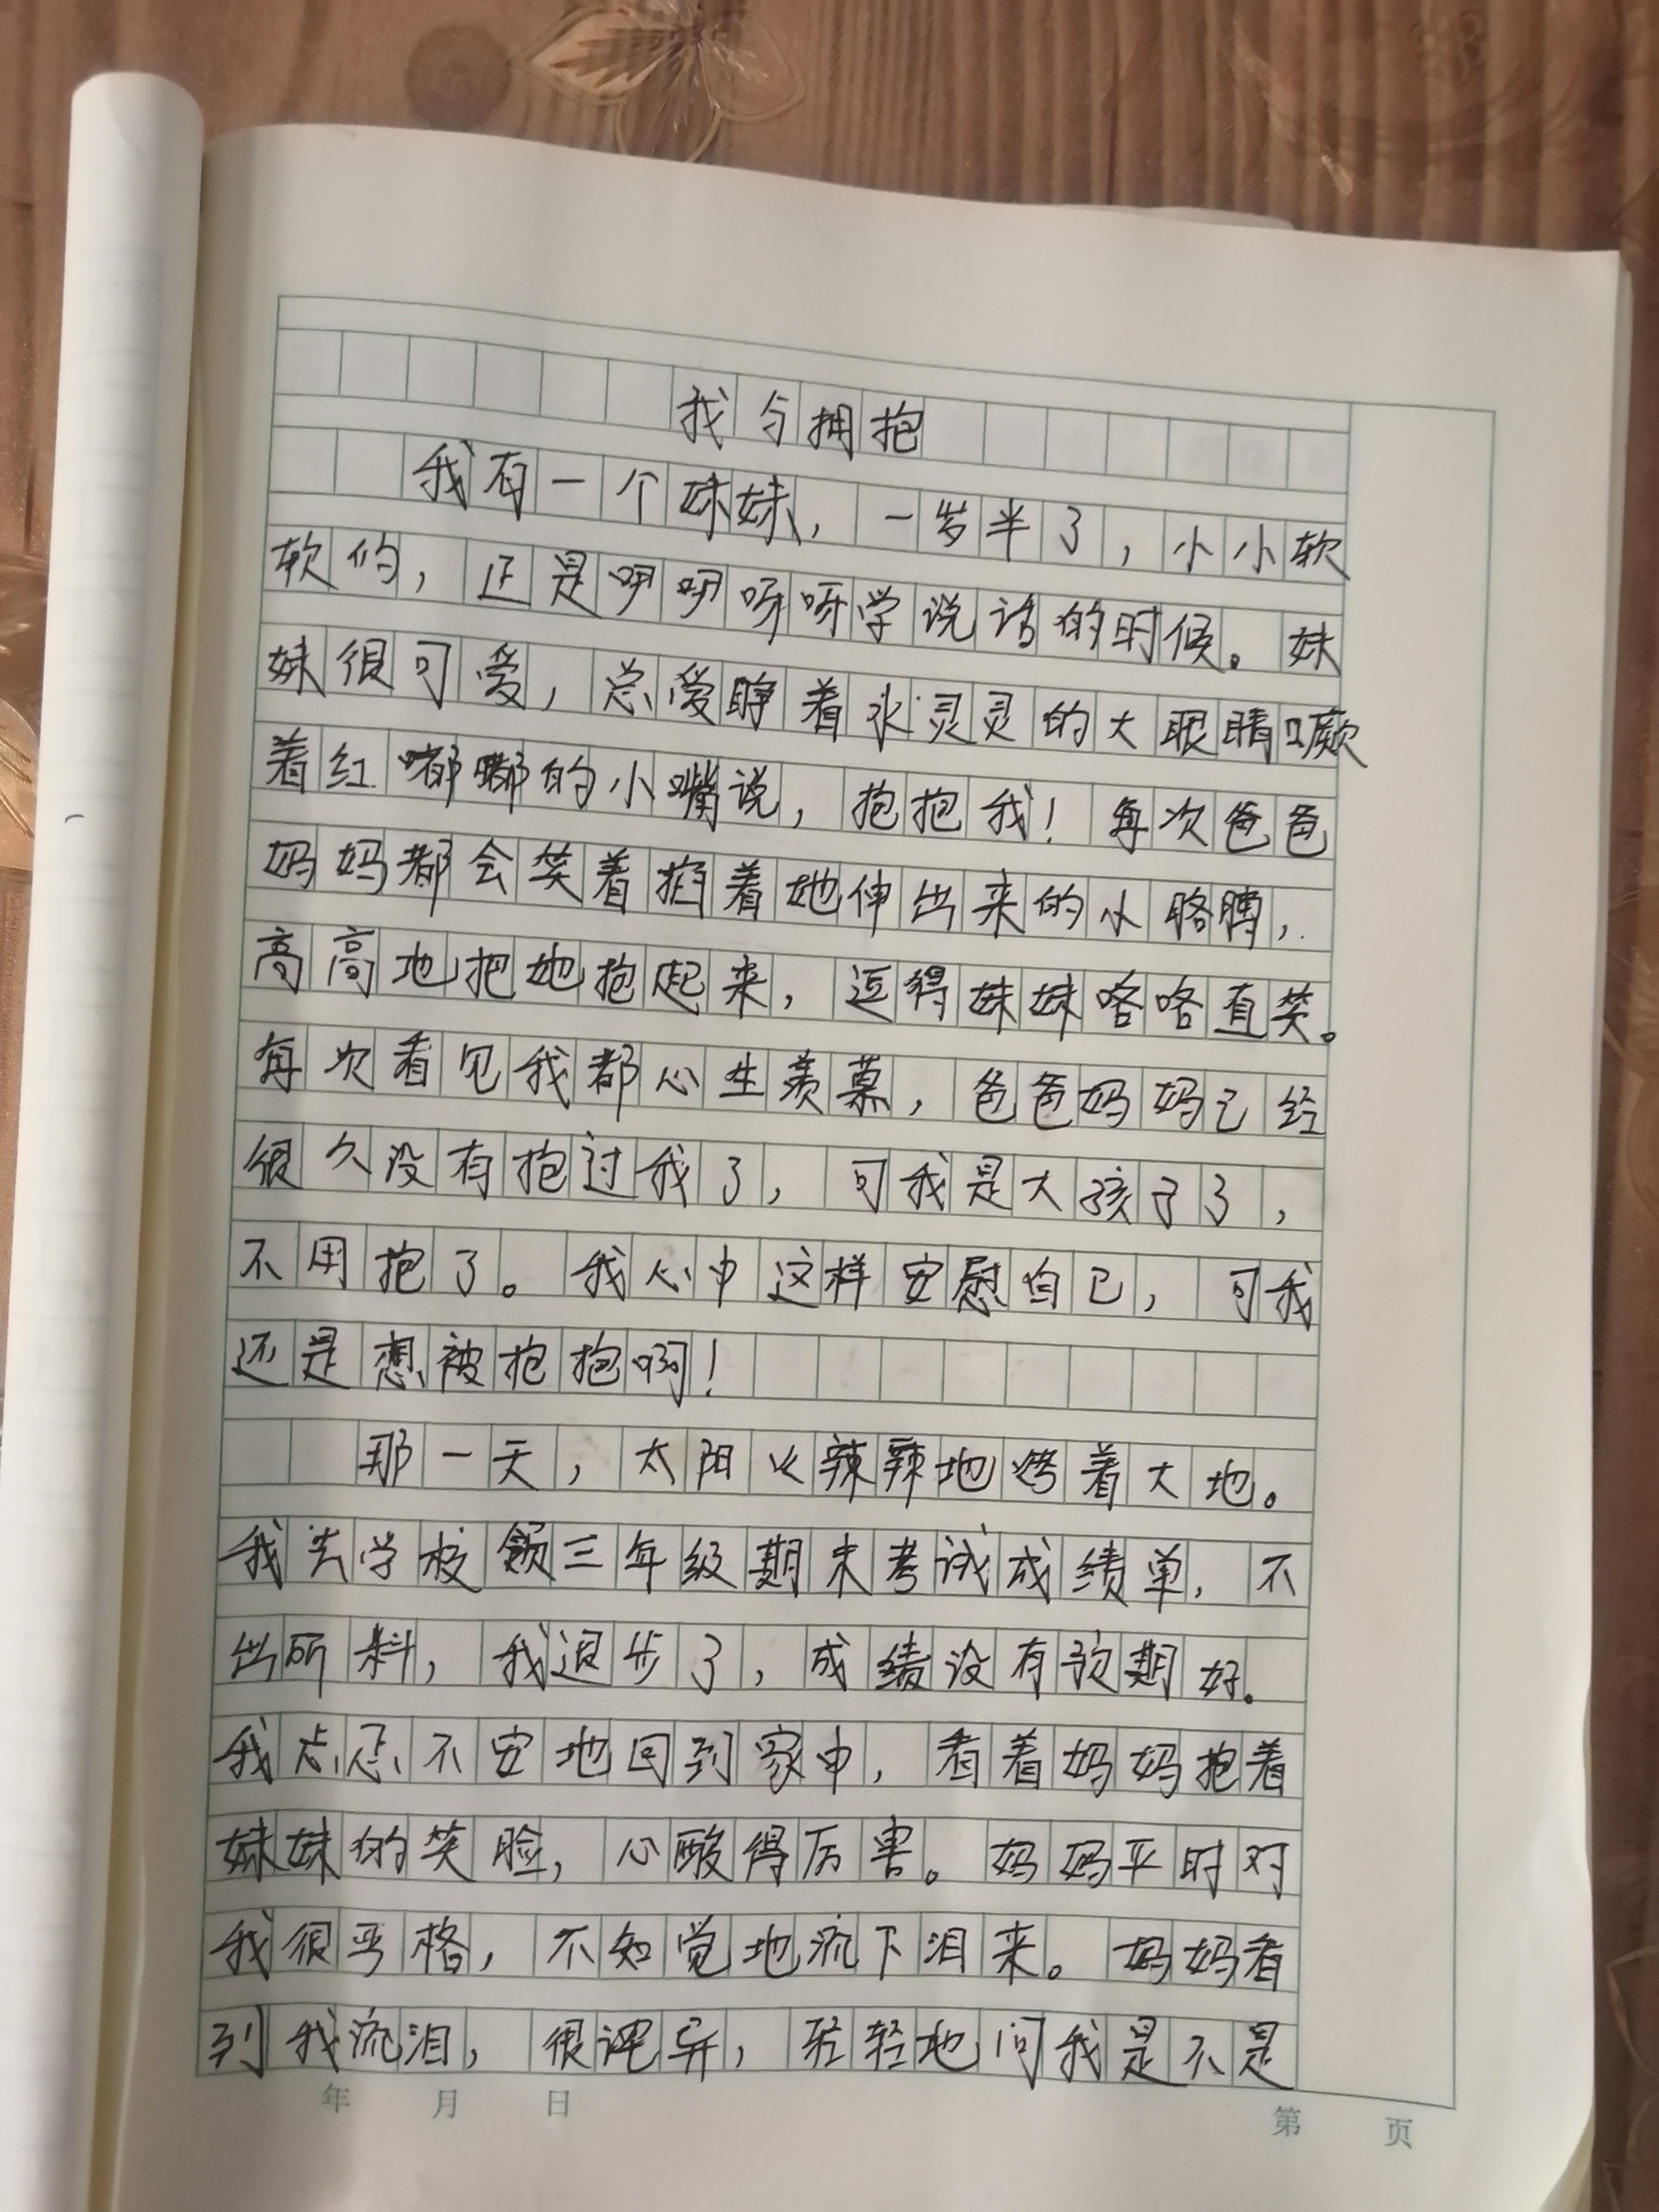 我与拥抱
我有一个妹妹，一岁半了，小小软
软的，正是咿咿呀呀学说话的时候。妹
妹很可爱，总爱睁着水灵灵的大眼睛噘
着红嘟嘟的小嘴说，抱抱我！每次爸爸
妈妈都会笑着掐着她伸出来的小胳膊，
高高地把她抱起来，逗得妹妹咯咯直笑。
每次看见我都心生羡慕，爸爸妈妈已经
很久没有抱过我了，可我是大孩子了，
不用抱了。我心中这样安慰自己，可我
还是想被抱抱啊！
那一天，太阳火辣辣地烤着大地。
我去学校领三年级期末考试成绩单，不
出所料，我退步了，成绩没有预期好。
我忐忑不安地回到家中，看着妈妈抱着
妹妹的笑脸，心酸得厉害。妈妈平时对
我很严格，不知觉地流下泪来。妈妈看
到我流泪，很诧异，轻轻地问我是不是
年 月 日
第 页